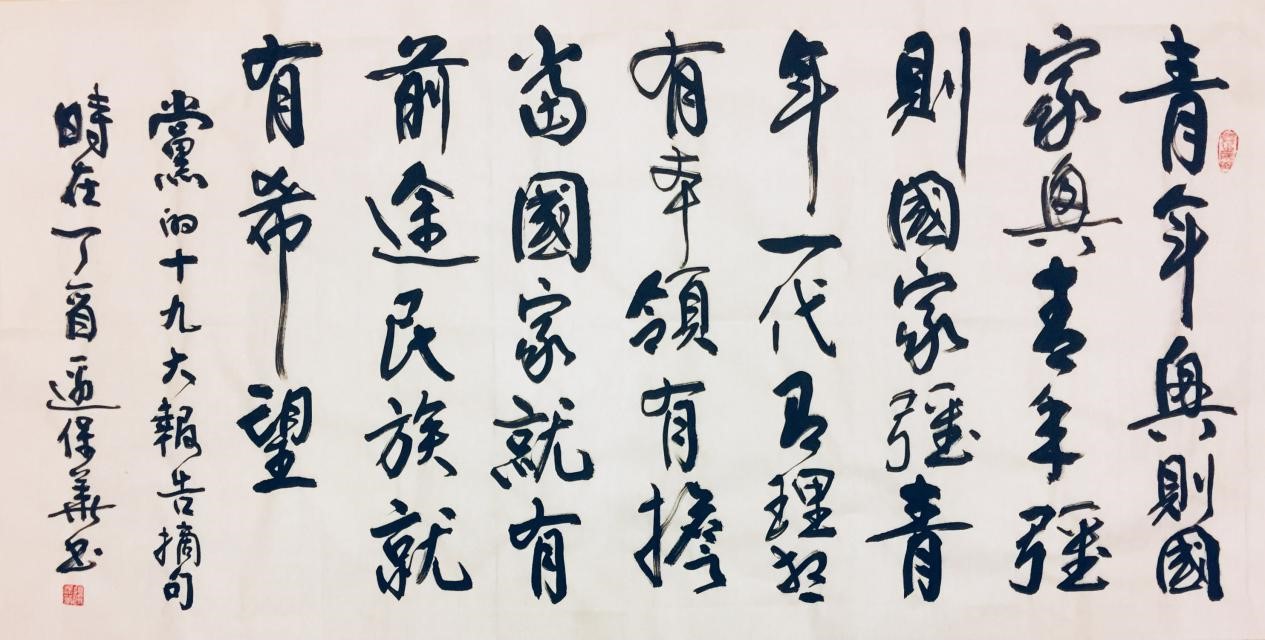 青年興則國
家興青年彊
則國家彊青
年一代有理想
有本領有擔
當國家就有
前途民族就
有希望
黨的十九大報告摘句
時在丁酉邊保華書